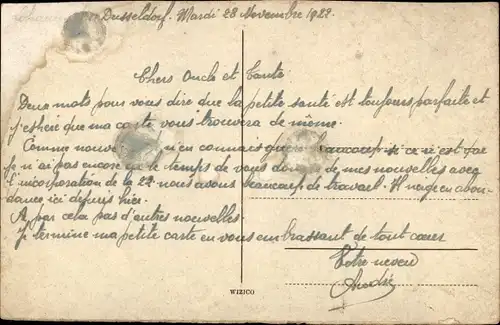 Dusseldorf. Mardi 28 Novembre 1922.
Chers Oncle et Tante
Deux mots pour vous dire que la petite santé est toujours parfaite et
j'espère que ma carte vous trouvera de même.
Comme nouvelles n'en connais guère beaucoup si ce n'est que
je n'ai pas encore eu le temps de vous donner de mes nouvelles avec
l'incorporation de la 22 nous avons beaucoup de travail. Il neige en abon-
dance ici depuis hier.
A part cela pas d'autres nouvelles.
Je termine ma petite carte en vous embrassant de tout cœur
Votre neveu
André
WIZICO